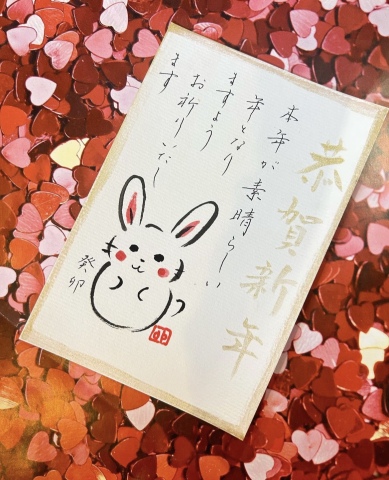 恭賀新年
本年が素晴らしい
年となり
ますよう
お祈りいたし
ます
癸卯
卯